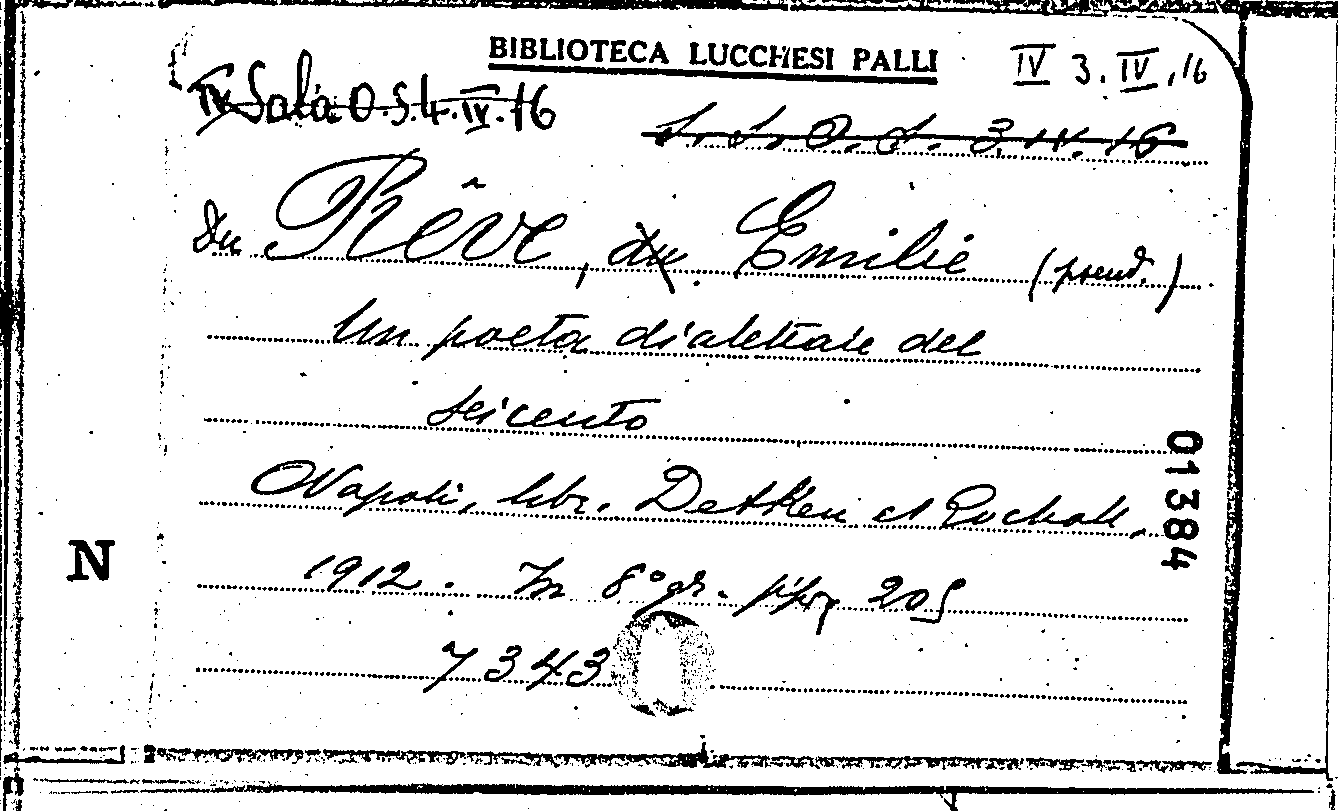 BIBLIOTECA LUCCHESI PALLI
IV 3. IV, 16
IV Sala O.S.4.IV.16
S. S. O. S. 3. IV. 16
Du Rêve, du Emilie (pseud.)
Un poeta dialettale del
seicento
Napoli, libr. Detken et Rocholl,
1912. In 8° gr. pp. 205
7343
01384
N